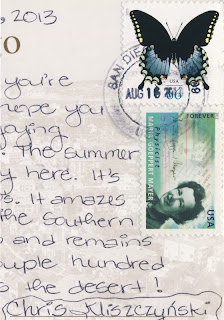 , 2013
O
y you're
hope you
joying
. The summer
y here. It's
s. It amazes
the Southern
o and remains
ouple hundred
s the desert!
Chris Kliszczyński
USA
SAN DIE
AUG 16 2013
FOREVER
Physicist
MARIA GOEPPERT MAYER
USA